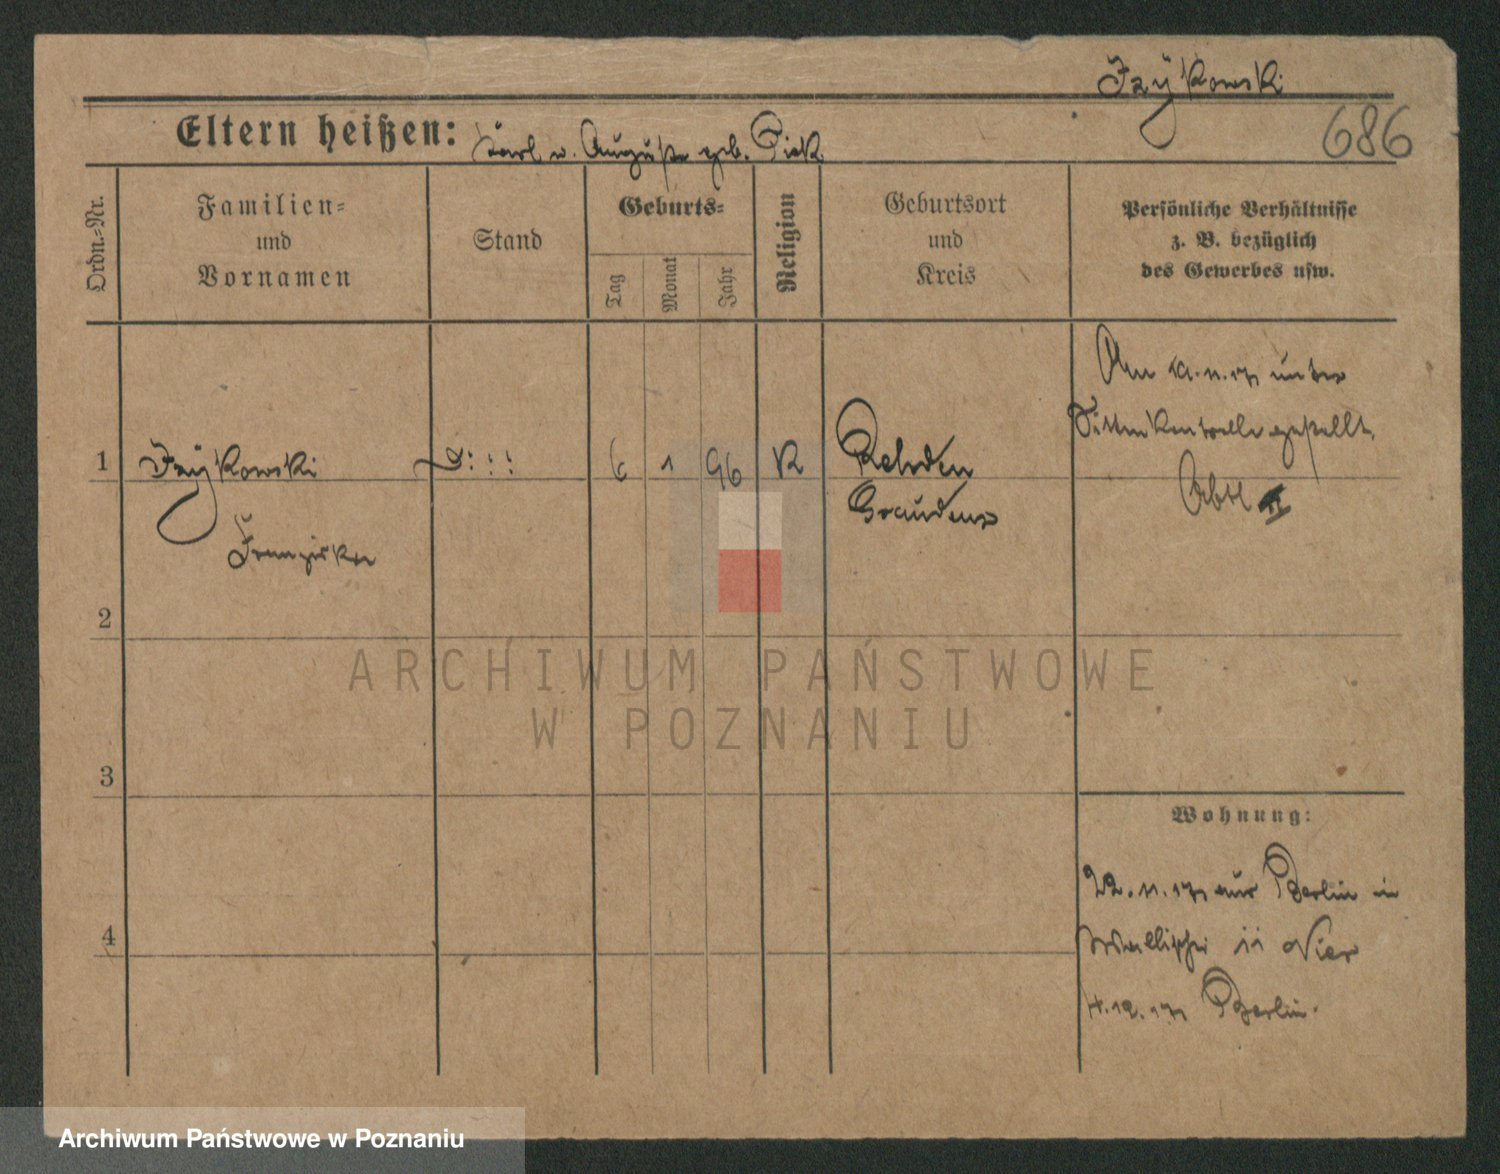 Izykowski
686
Eltern heißen: Karl u. Auguste geb. Piek
Ordn.-Nr.
Familien-
und
Vornamen
Stand
Geburts-
Tag
Monat
Jahr
Religion
Geburtsort
und
Kreis
Persönliche Verhältnisse
z. B. bezüglich
des Gewerbes usw.
Am 19.11.17 unter
Sittenkontrolle gestellt.
Abtl II
1 Izykowski 6 1 96 K Rehden
Graudenz
Franziska
2
3
4
Wohnung:
22.11.17 aus Berlin in
Wallischei 11
4.12.17 Berlin.
ARCHIWUM PAŃSTWOWE
W POZNANIU
Archiwum Państwowe w Poznaniu